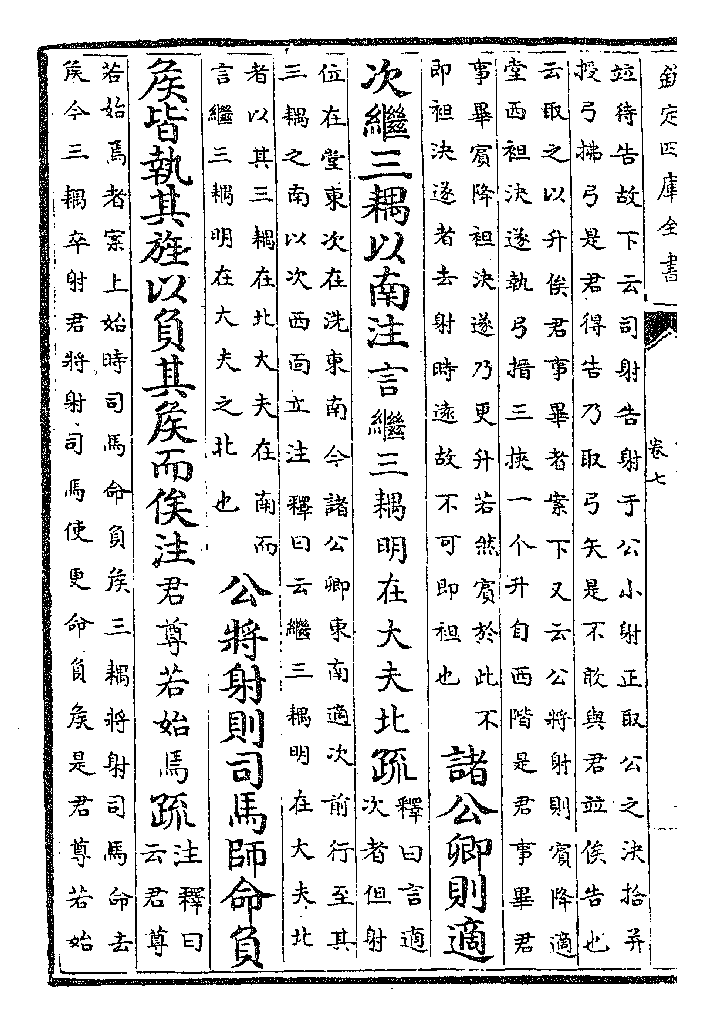 欽定四庫全書
卷七
竝待告故下云司射告射于公小射正取公之決拾并
授弓拂弓是君得告乃取弓矢是不敢與君竝俟告也
云取之以升俟君事畢者案下又云公將射則賓降適
堂西袒決遂執弓搢三挾一个升自西階是君事畢君
事畢賓降袒決遂乃更升若然賓於此不
即袒決遂者去射時遠故不可即袒也
諸公卿則適
次繼三耦以南注言繼三耦明在大夫北疏
釋曰言適
次者但射
位在堂東次在洗東南今諸公卿東南適次前行至其
三耦之南以次西面立注釋曰云繼三耦明在大夫北
者以其三耦在北大夫在南而
言繼三耦明在大夫之北也
公將射則司馬師命負
侯皆執其旌以負其侯而俟注君尊若始焉疏
注釋曰
云君尊
若始焉者案上始時司馬命負侯三耦將射司馬命去
侯今三耦卒射君將射司馬使更命負侯是君尊若始